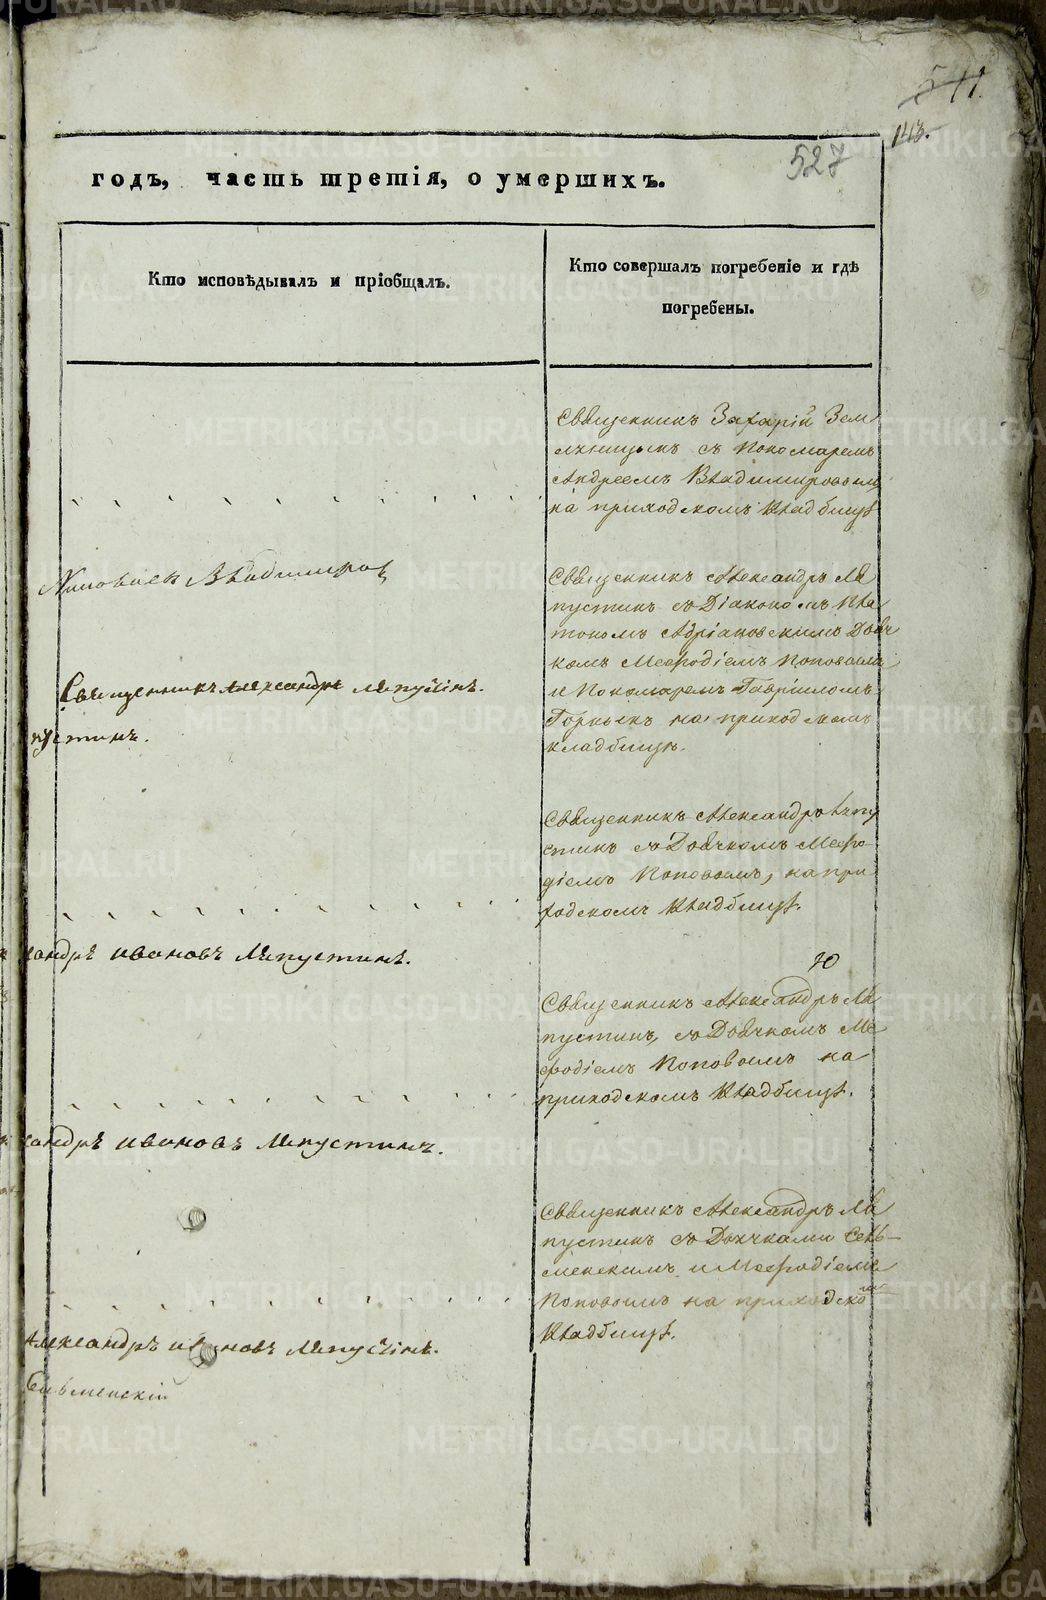 511.
113.
527
годъ, часть третія, о умершихъ.
Кто исповѣдывалъ и пріобщалъ.
Кто совершалъ погребеніе и гдѣ
погребены.
Священникъ Захарій Зем
съ Пономаремъ
Андреемъ Владимировымъ
на приходскомъ кладбищѣ
Владимиров
Священникъ Александръ Ля
пустинъ съ Діакономъ Пла
тономъ Адріановскимъ Дьяч
комъ Меѳодіемъ Поповымъ
и Пономаремъ Гавріиломъ
на приходскомъ
кладбищѣ.
Священникъ Александръ Ляпустинъ.
пустинъ.
Священникъ Александръ Ляпу
стинъ съ Дьячкомъ Меѳо-
діемъ Поповымъ, на при
ходскомъ кладбищѣ.
сандръ Ивановъ Ляпустинъ.
Ю
Священникъ Александръ Ля
пустинъ, съ Дьячкомъ Ме
ѳодіемъ Поповымъ на
приходскомъ кладбищѣ.
сандръ Ивановъ Ляпустинъ.
Священникъ Александръ Ля
пустинъ съ Дьячками Сель-
менскимъ и Меѳодіемъ
Поповымъ на приходско
мъ
кладбищѣ.
Александръ Ивановъ Ляпустинъ.
Сельменскій
METRIKI.GASO-URAL.RU